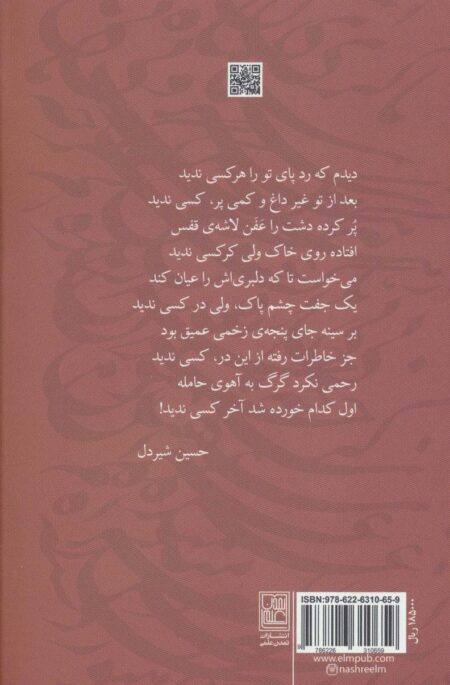 دیدم که رد پای تو را هرکسی ندید
بعد از تو غیر داغ و کمی پر، کسی ندید
پُر کرده دشت را عَفَن لاشه‌ی قفس
افتاده روی خاک ولی کرکسی ندید
می‌خواست تا که دلبری‌اش را عیان کند
یک جفت چشم پاک، ولی در کسی ندید
بر سینه جای پنجه‌ی زخمی عمیق بود
جز خاطرات رفته از این در، کسی ندید
رحمی نکرد گرگ به آهوی حامله
اول کدام خورده شد آخر کسی ندید!
حسین شیردل
ISBN:978-622-6310-65-9
9 786226 310659
۱۸۵۰۰۰ ریال
انتشارات
تمدن علمی
www.elmpub.com
nashreelm